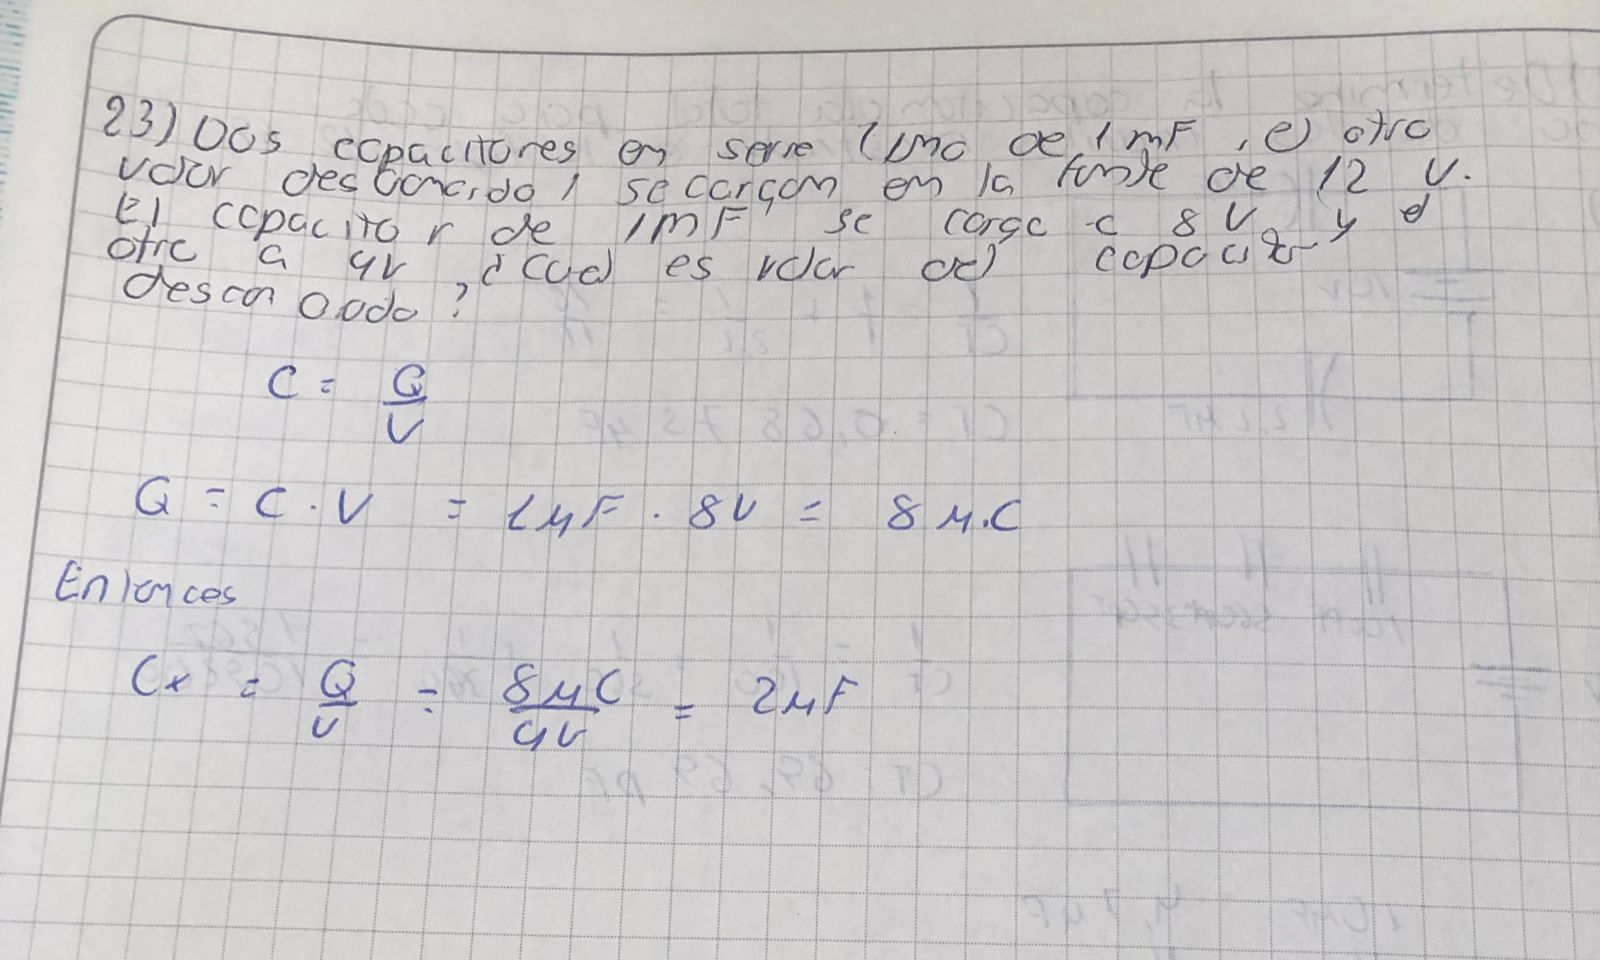 23) Dos capacitores en serie (uno de 1 mF, el otro
valor desconocido) se cargan en la fuente de 12 V.
El capacitor de 1mF se carga a 8 V y el
otro a 4V, ¿Cual es valor del capacitor
desconocido?
C = Q/V
Q = C . V = 1μF . 8V = 8 μ.C
Entonces
Cx = Q/V = 8μC/4V = 2μF